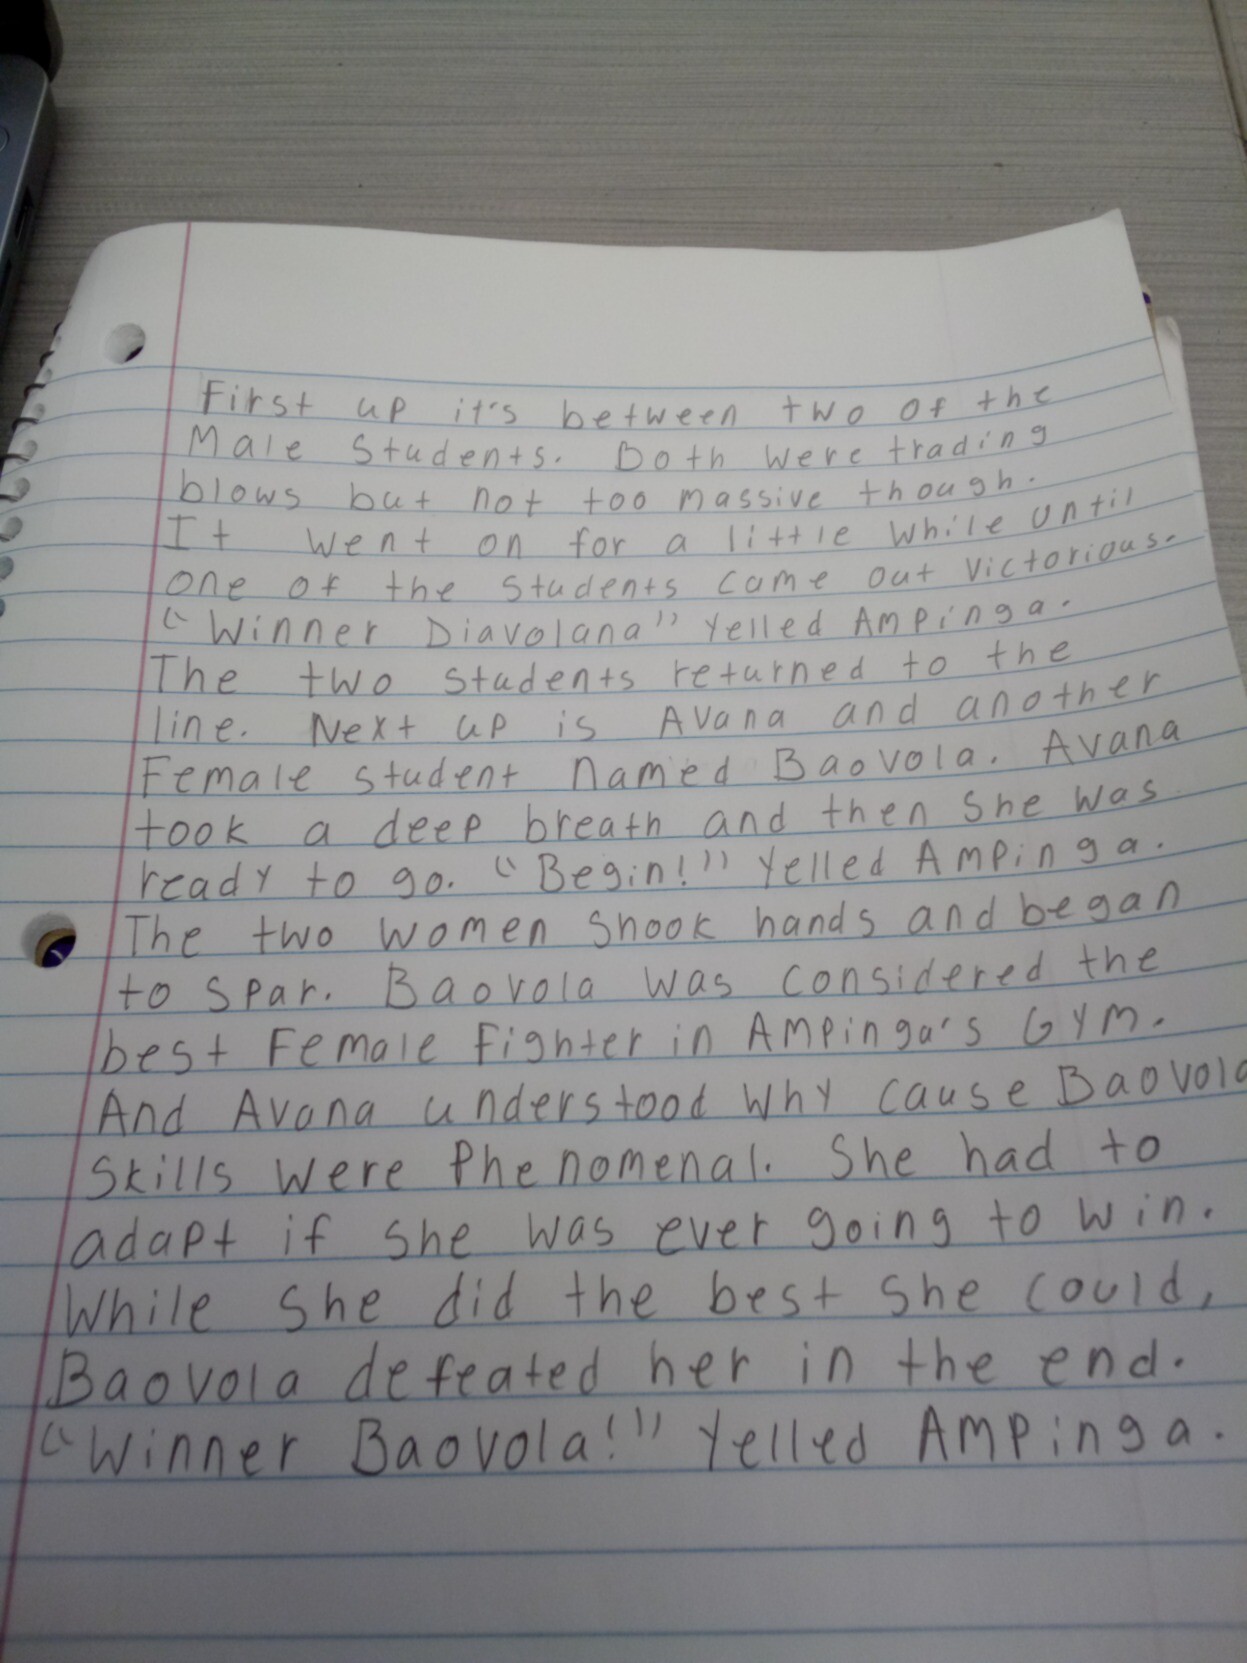 First up it's between two of the
Male Students. Both were trading
blows but not too massive though.
It went on for a little while until
one of the students came out victorious.
"Winner Diavolana" Yelled Ampinga.
The two students returned to the
line. Next up is Avana and another
Female student named Baovola. Avana
took a deep breath and then she was
ready to go. "Begin!" Yelled Ampinga.
The two women shook hands and began
to spar. Baovola was considered the
best Female Fighter in Ampinga's Gym.
And Avana understood why cause Baovola
Skills were Phenomenal. She had to
adapt if she was ever going to win.
While she did the best she could,
Baovola defeated her in the end.
"Winner Baovola!" Yelled Ampinga.